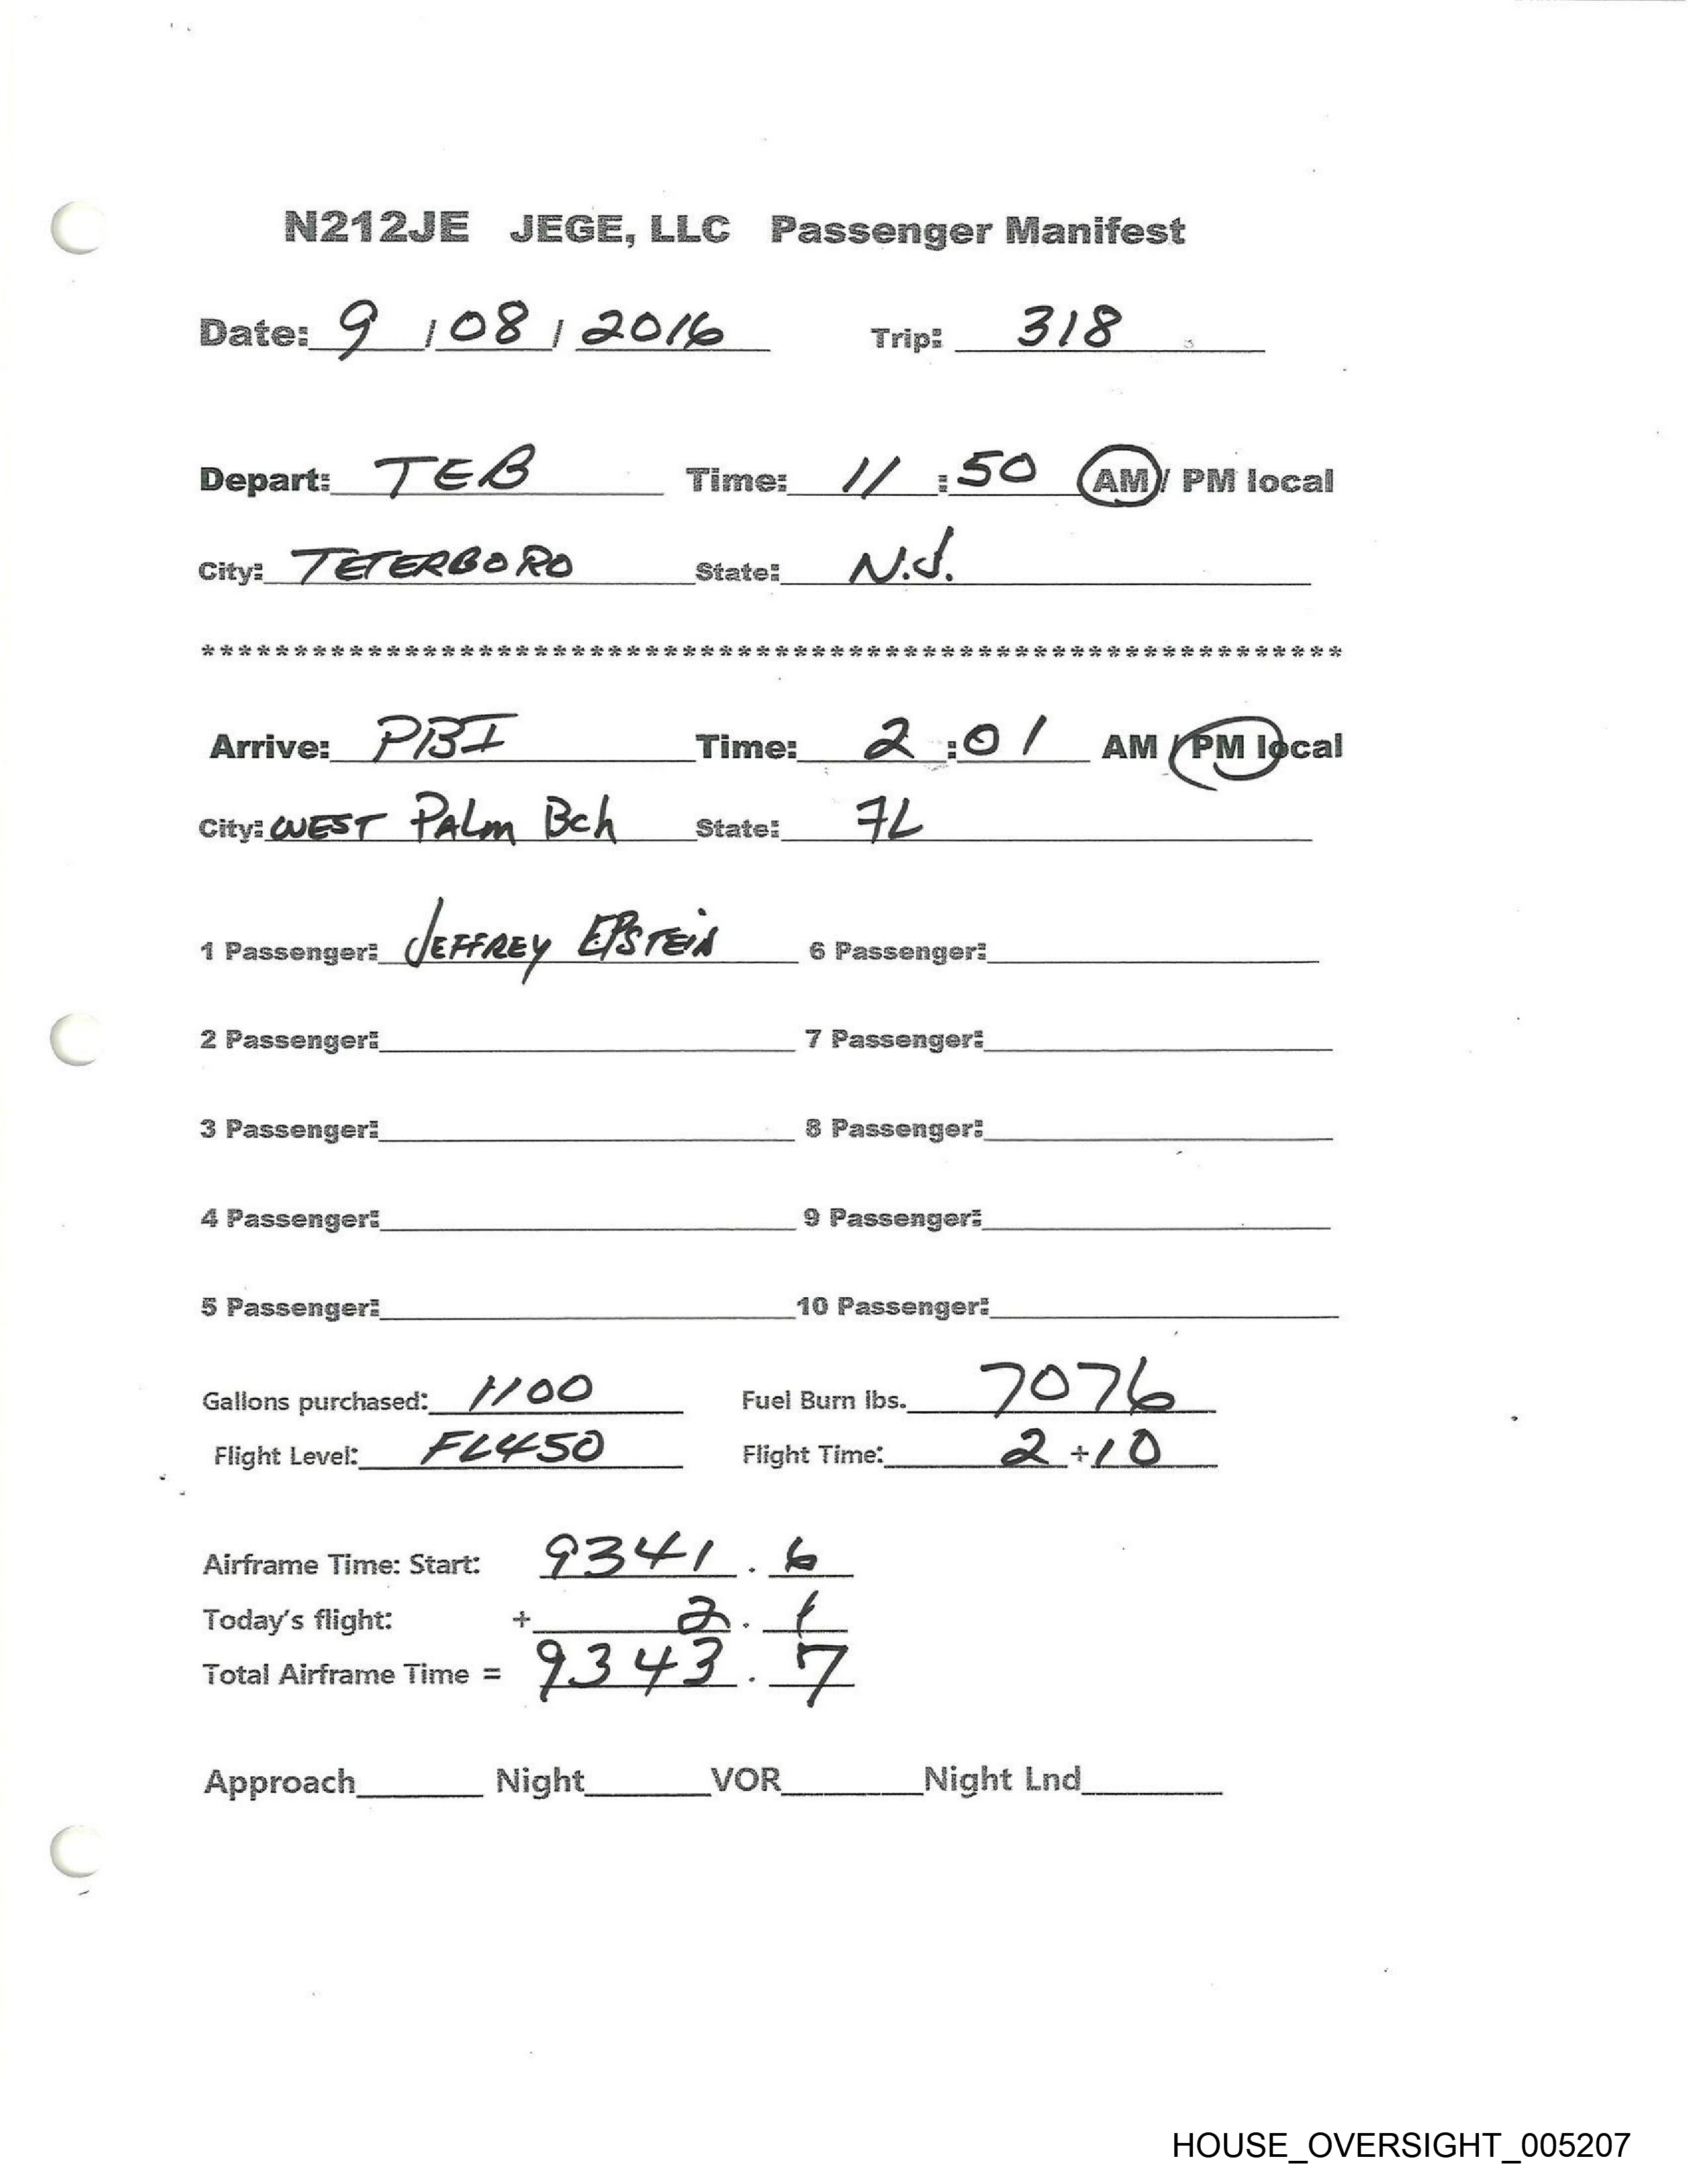 N212JE JEGE, LLC Passenger Manifest
Date: 9 / 08 / 2016 Trip: 318
Depart: TEB Time: 11 : 50 AM / PM local
City: TETERBORO State: N.J.
**************************************************************
Arrive: PBI Time: 2 : 01 AM / PM local
City: WEST PALm Bch State: FL
1 Passenger: JEFFREY EPSTEIN 6 Passenger:
2 Passenger: 7 Passenger:
3 Passenger: 8 Passenger:
4 Passenger: 9 Passenger:
5 Passenger: 10 Passenger:
Gallons purchased: 1100 Fuel Burn lbs. 7076
Flight Level: FL450 Flight Time: 2 + 10
Airframe Time: Start: 9341 . 6
Today's flight: + 2 . 1
Total Airframe Time = 9343 . 7
Approach Night VOR Night Lnd
HOUSE_OVERSIGHT_005207